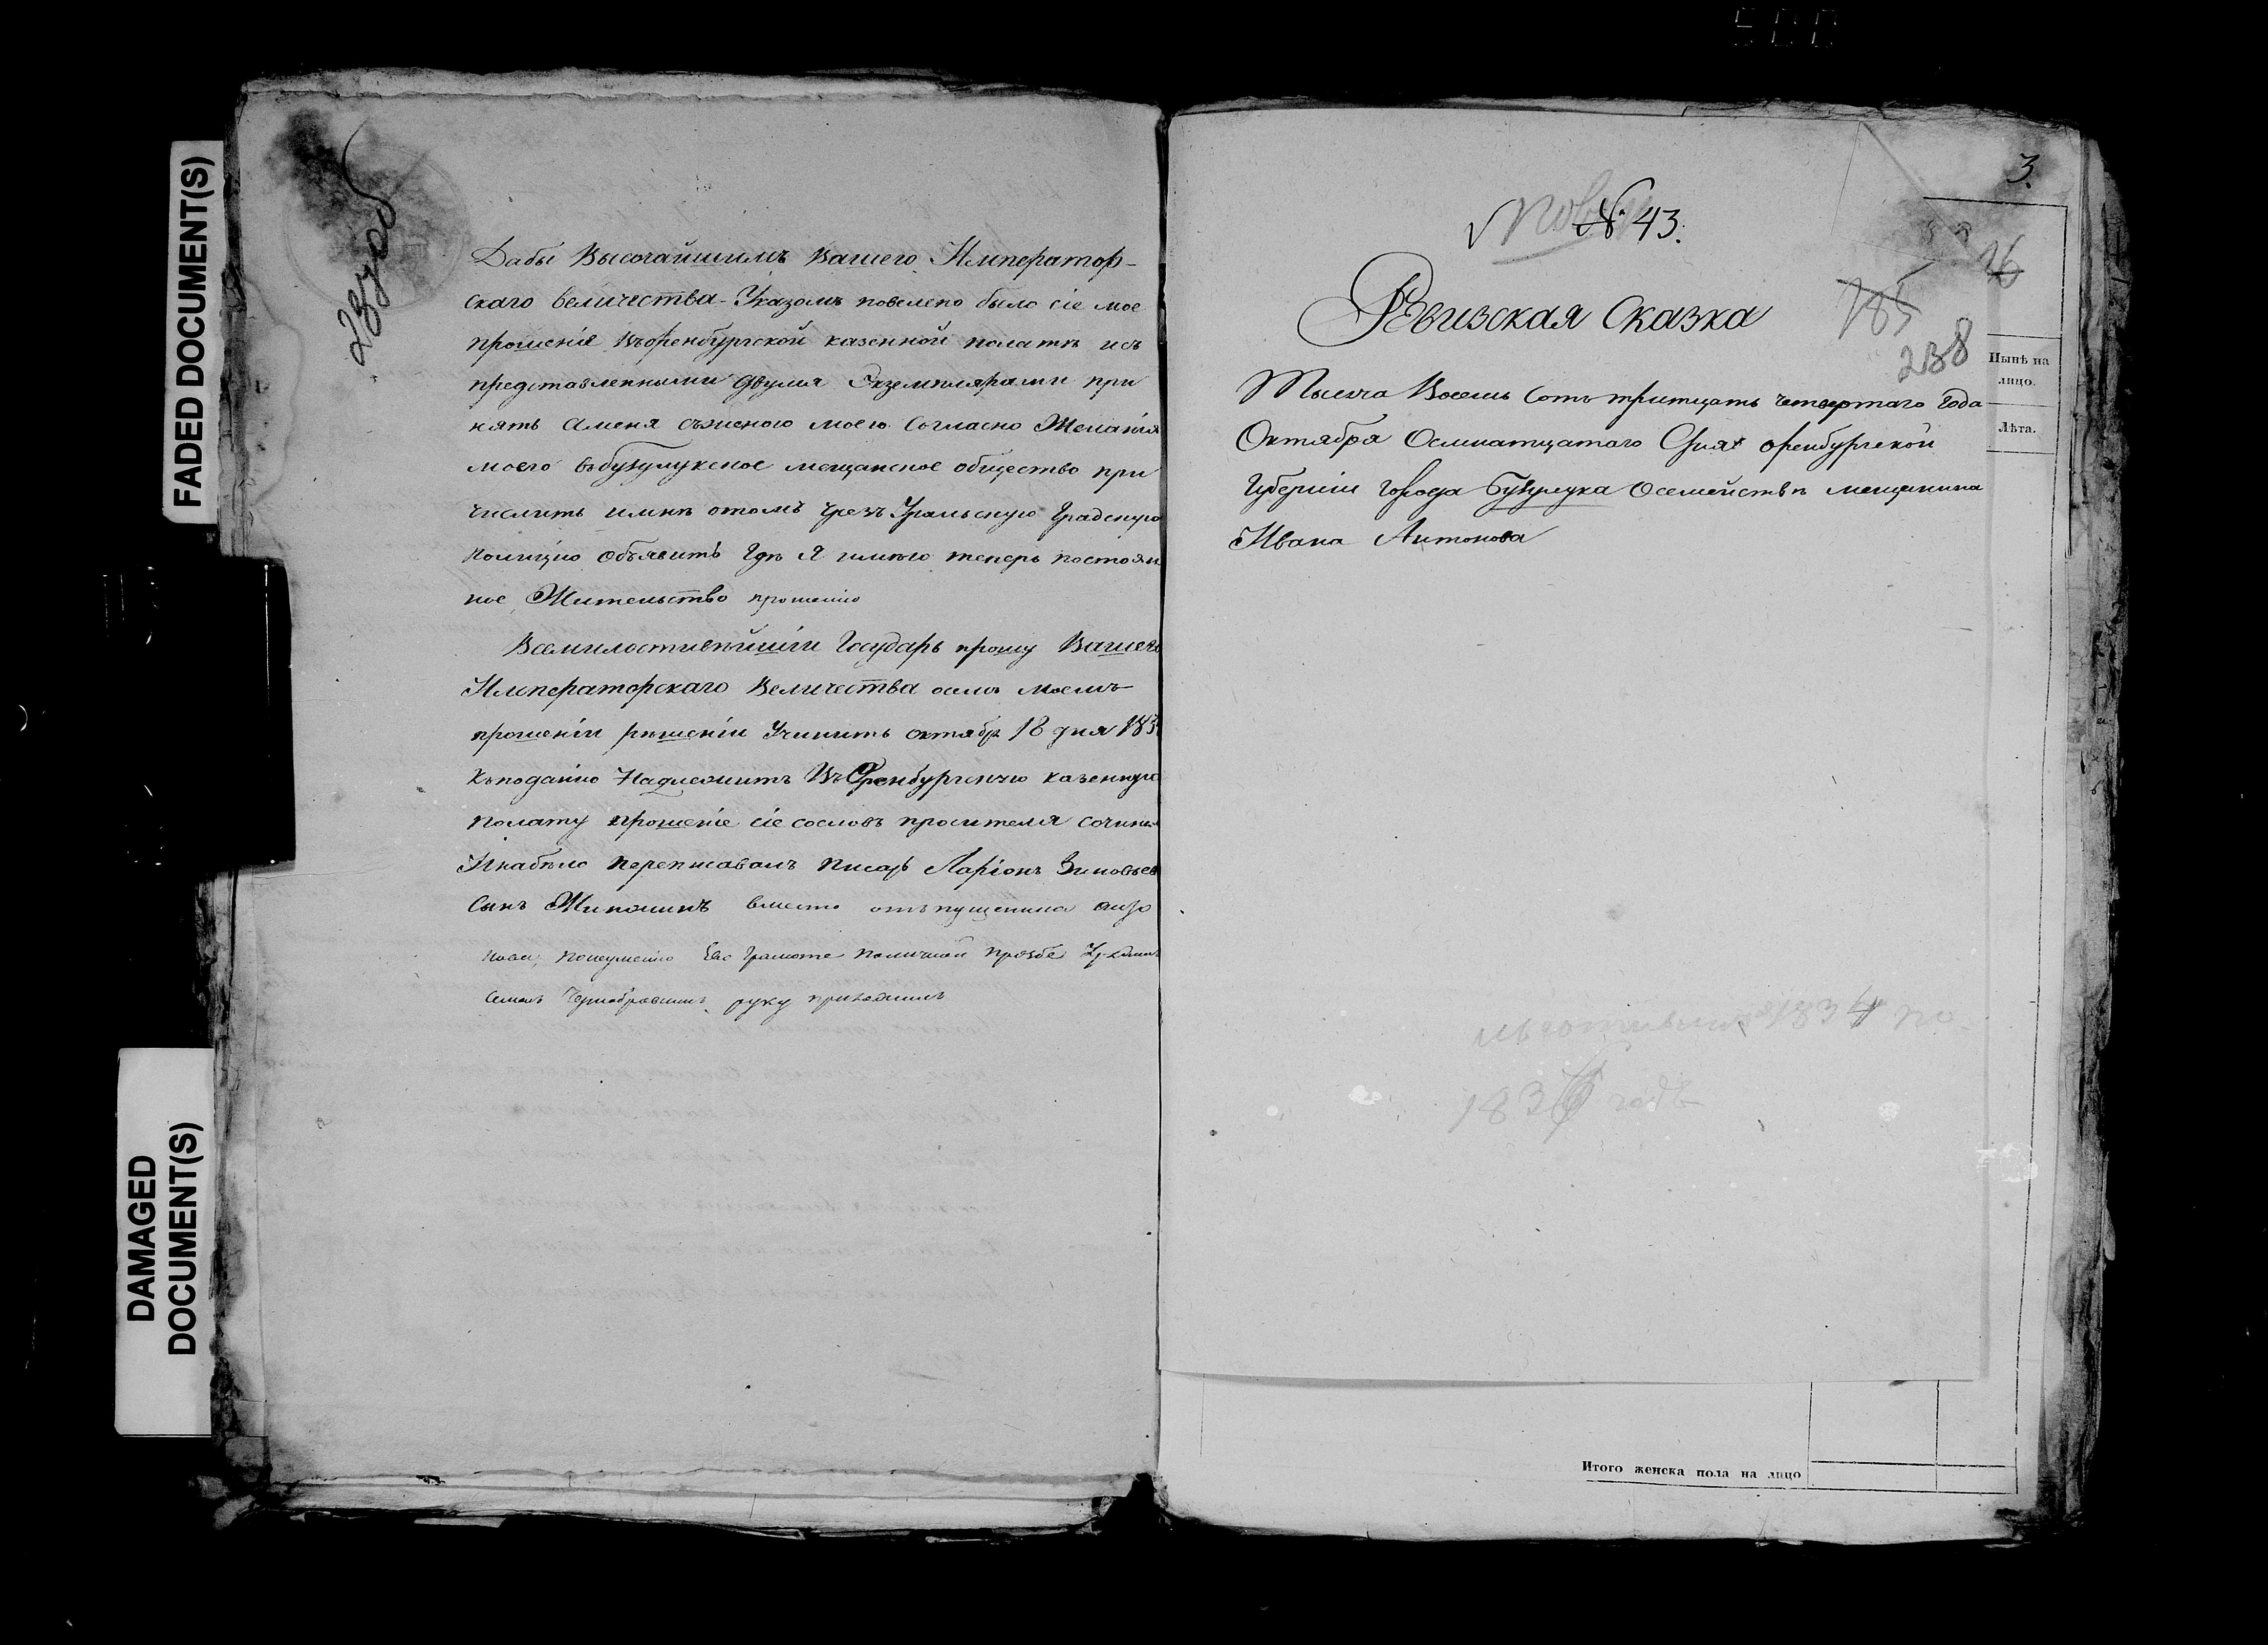 FADED DOCUMENT(S)
DAMAGED
DOCUMENT(S)
237 об
Дабы Высочайшимъ Вашего Император-
скаго величества Указомъ повелено было сіе мое
прошеніе Въоренбургской казенной полатѣ исъ
представленными двумя Экземплярами при
нять Аменя съженою моею Согласно Желанія
моего въбузулукское мещанское общество при
числить имнѣ отомъ чрезъ Уральскую Градскую
полицію объявить Гдѣ Я имѣю теперь постоян
ное Жительство прошенію
Всемилостивѣйшій Государь прошу Вашего
Императорскаго Величества осемъ моемъ
прошеніи рѣшеніи Учинить октябр 18 дня 183
Къподанію Надлежитъ ВъОренбургскую казенную
полату прошеніе сіе сословъ просителя сочинял
Инабѣло переписавалъ писарь Ларіонъ Зиновьев
Сынъ вместо отъпущенина
Его Грамоте прозбе
Семенъ руку приложилъ
3.
№ 43.
26
185
238
Ревизская Сказка
Тысяча Восемь Сотъ тритцать четвертаго Года
Октября Осмнатцатаго Дня оренбургской
Губерніи города Бузулука Осемействѣ мещанина
Ивана Антонова
Нынѣ на
лицо.
Лѣта.
1834 по
1836 годъ
Итого женска пола на лицо